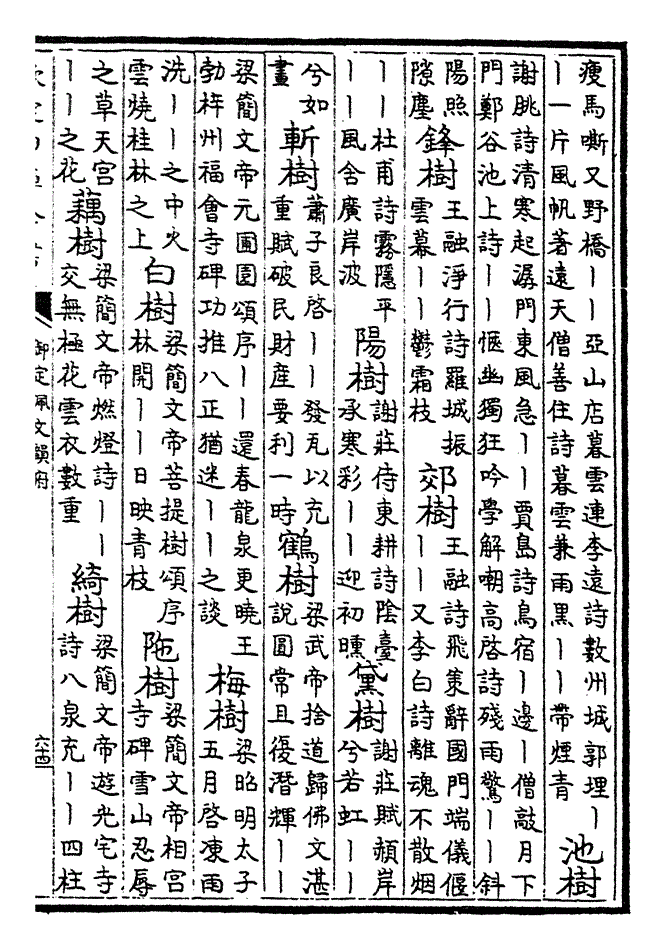 瘦馬嘶又野橋丨丨亞山店暮雲連李遠詩數州城郭埋丨
丨一片風帆著遠天僧善住詩暮雲兼雨黑丨丨帶煙青
池樹
謝朓詩清寒起潺門東風急丨丨賈島詩鳥宿丨邊丨僧敲月下
門鄭谷池上詩丨丨愜幽獨狂吟學解嘲高啓詩殘雨驚丨丨斜
陽照
隙塵
鋒樹
王融淨行詩羅城振
雲幕丨丨鬱霜枝
郊樹
王融詩飛策辭國門端儀偃
丨丨又李白詩離魂不散烟
丨丨杜甫詩霧隱平
丨丨風含廣岸波
陽樹
謝莊侍東耕詩陰臺
承寒彩丨丨迎初曛
黛樹
謝莊賦頳岸
兮若虹丨丨
兮如
畫
斬樹
蕭子良啓丨丨發瓦以充
重賦破民財產要利一時
鶴樹
梁武帝捨道歸佛文湛
說圓常且復潛輝丨丨
梁簡文帝元圃園頌序丨丨還春龍泉更曉王
勃梓州福會寺碑功推八正猶迷丨丨之談
梅樹
梁昭明太子
五月啓凍雨
洗丨丨之中火
雲燒桂林之上
白樹
梁簡文帝菩提樹頌序
林開丨丨日映青枝
陁樹
梁簡文帝相宮
寺碑雪山忍辱
之草天宮
丨丨之花
藕樹
梁簡文帝燃燈詩丨丨
交無極花雲衣數重
綺樹
梁簡文帝遊光宅寺
詩八泉充丨丨四柱
御定佩文韻府
六十四